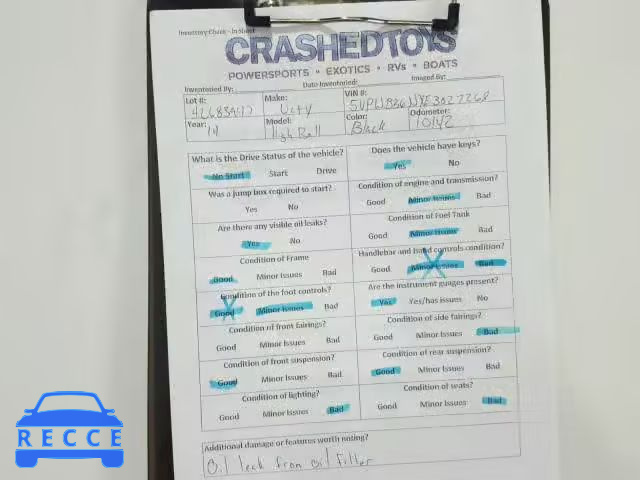 Inventory Check - In Sheet
CRASHEDTOYS
POWERSPORTS • EXOTICS • RVs • BOATS
Inventoried By: Date Inventoried: Imaged By:
Lot #: Make: VIN #:
Victy
Year: Model: Color: Odometer:
14 High Ball Black 10142
What is the Drive Status of the vehicle? Does the vehicle have keys?
No Start Start Drive Yes No
Was a jump box required to start? Condition of engine and transmission?
Yes No Good Minor Issues Bad
Are there any visible oil leaks? Condition of Fuel Tank
Yes No Good Minor Issues Bad
Condition of Frame Handlebar and hand controls condition?
Good Minor Issues Bad Good Minor Issues Bad
Condition of the foot controls? Are the instrument guages present?
Good Minor Issues Bad Yes Yes/has issues No
Condition of front fairings? Condition of side fairings?
Good Minor Issues Bad Good Minor Issues Bad
Condition of front suspension? Condition of rear suspension?
Good Minor Issues Bad Good Minor Issues Bad
Condition of lighting? Condition of seats?
Good Minor Issues Bad Good Minor Issues Bad
Additional damage or features worth noting?
Oil leak from oil filter
RECCE